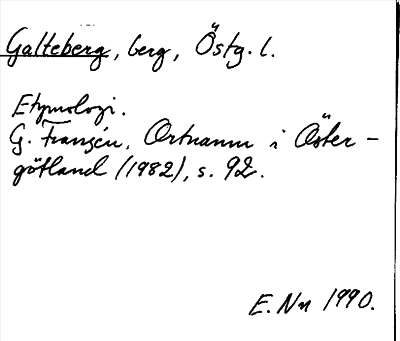 Galteberg, berg, Östg. l.
Etymologi.
G. Franzén, Ortnamn i Öster-
götland (1982), s. 92.
E. Nn 1990.